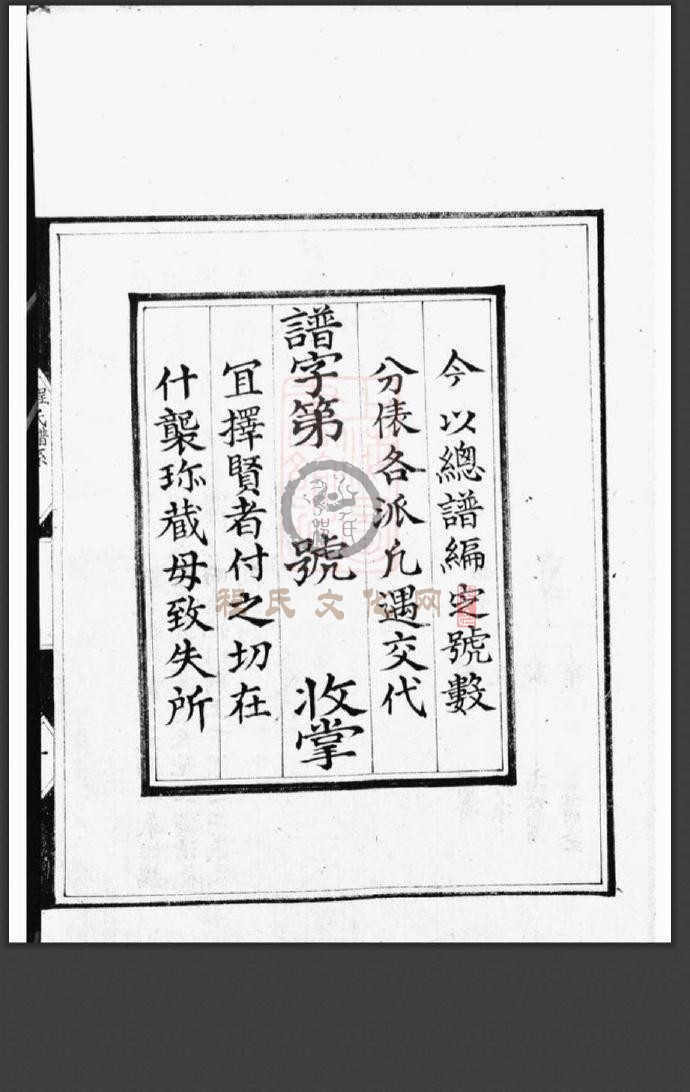 今以總譜編定號數
分俵各派凢遇交代
譜字第　號　收掌
冝擇賢者付之切在
什襲珎藏毋致失所
程氏譜系
程氏文化网